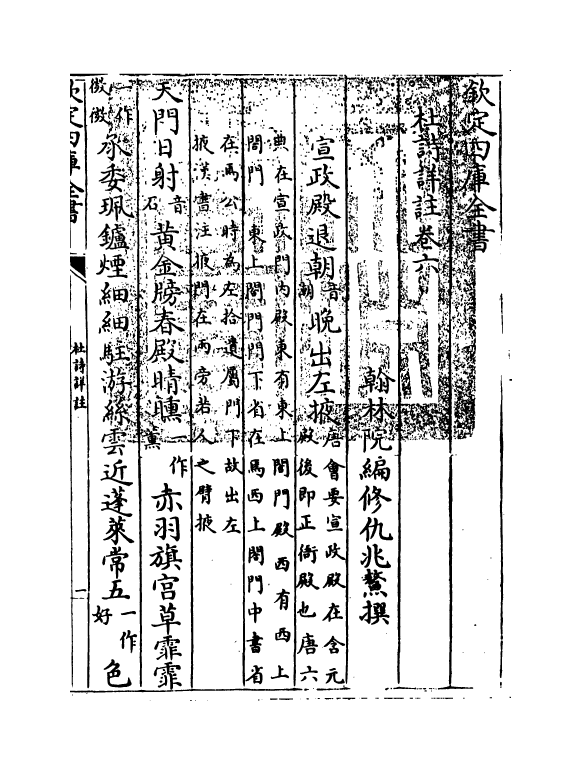 欽定四庫全書
杜詩詳註卷六
翰林院編修仇兆鰲撰
宣政殿退朝音潮晚出左掖唐會要宣政殿在含元
殿後即正衙殿也唐六
典在宣政門内殿東有東上閤門殿西有西上
閤門東上閤門門下省在焉西上閤門中書省
在焉公時為左拾遺屬門下故出左
掖漢書注掖門在兩旁若人之臂掖
天門日射音石黄金牓春殿晴曛一作熏赤羽旗宫草霏霏
一作微微承委珮鑪煙細細駐游絲雲近蓬萊常五一作好色
欽定四庫全書
杜詩詳註
一